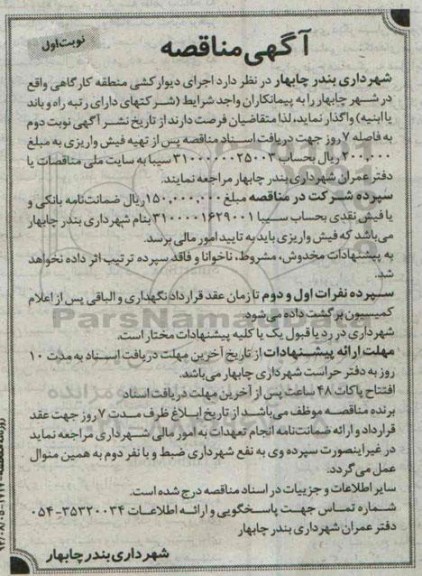 آگهی مناقصه
نوبت اول
شهرداری بندر چابهار در نظر دارد اجرای دیوارکشی منطقه کارگاهی واقع
در شهر چابهار را به پیمانکاران واجد شرایط (شرکتهای دارای رتبه راه و باند
یا ابنیه) واگذار نماید، لذا متقاضیان فرصت دارند از تاریخ نشر آگهی نوبت دوم
به فاصله ۷ روز جهت دریافت اسناد مناقصه پس از تهیه فیش واریزی به مبلغ
۲۰۰,۰۰۰ ریال بحساب ۳۱۰۰۰۰۰۰۲۵۰۰۳ سیبا به سایت ملی مناقصات یا
دفتر عمران شهرداری بندر چابهار مراجعه نمایند.
سپرده شرکت در مناقصه مبلغ ۱۵۰,۰۰۰,۰۰۰ ریال ضمانت‌نامه بانکی و
یا فیش نقدی بحساب سیبا ۳۱۰۰۰۰۱۶۲۹۰۰۱ بنام شهرداری بندر چابهار
می‌باشد که فیش واریزی باید به تایید امور مالی برسد.
به پیشنهادات مخدوش، مشروط، ناخوانا و فاقد سپرده ترتیب اثر داده نخواهد
شد.
سپرده نفرات اول و دوم تا زمان عقد قرارداد نگهداری و الباقی پس از اعلام
کمیسیون برگشت داده می‌شود.
شهرداری در رد یا قبول یک یا کلیه پیشنهادات مختار است.
مهلت ارائه پیشنهادات از تاریخ آخرین مهلت دریافت اسناد به مدت ۱۰
روز به دفتر حراست شهرداری چابهار می‌باشد.
افتتاح پاکات ۴۸ ساعت پس از آخرین مهلت دریافت اسناد
برنده مناقصه موظف می‌باشد از تاریخ ابلاغ ظرف مدت ۷ روز جهت عقد
قرارداد و ارائه ضمانت‌نامه انجام تعهدات به امور مالی شهرداری مراجعه نماید
در غیر اینصورت سپرده وی به نفع شهرداری ضبط و با نفر دوم به همین منوال
عمل می‌گردد.
سایر اطلاعات و جزییات در اسناد مناقصه درج شده است.
شماره تماس جهت پاسخگویی و ارائه اطلاعات ۳۵۳۲۰۰۳۴-۰۵۴
دفتر عمران شهرداری بندر چابهار
شهرداری بندر چابهار
ParsNamadData